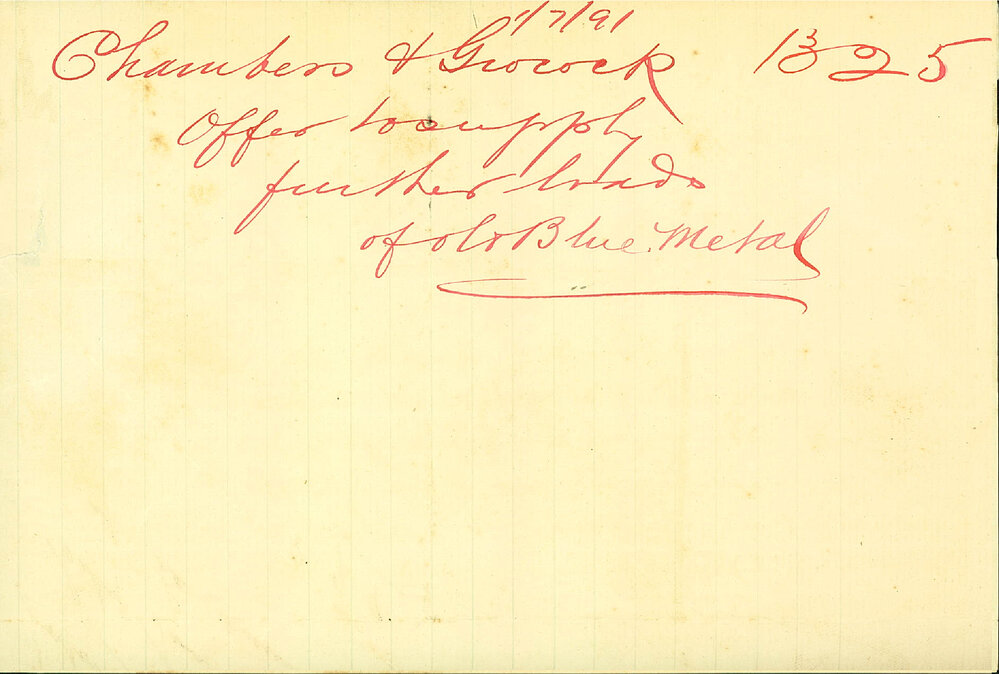 1/7/91
Chambers & Grocock 1325
Offer to supply
further loads
of old Blue Metal